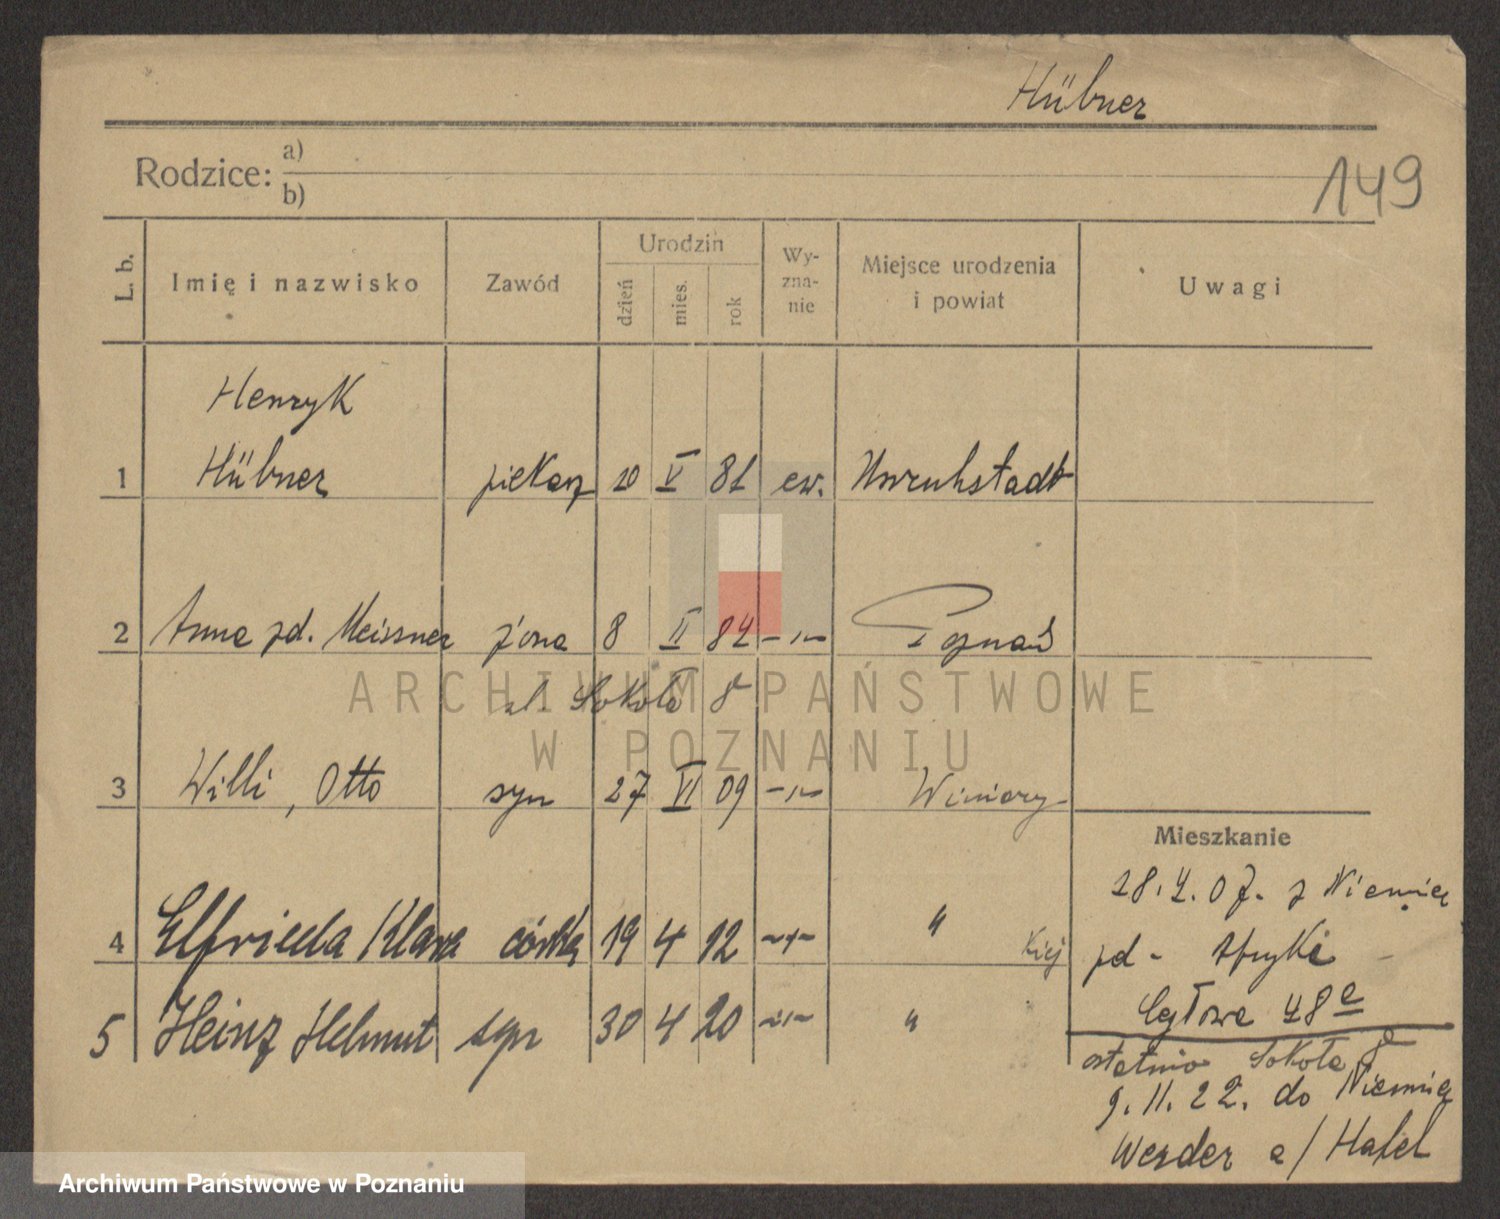 Hübner
149
Rodzice: a)
b)
L. b. Imię i nazwisko Zawód Urodzin dzień mies. rok Wyznanie Miejsce urodzenia i powiat Uwagi
Henryk
1 Hübner piekarz 20 V 81 ew. Unruhstadt
2 Anna zd. Meissner żona 8 II 82 -"- Poznań
ul. Sokoła 8
3 Willi, Otto syn 27 VI 09 -"- Winiary
Mieszkanie
28.4.07. z Niemiec
4 Elfrieda Klara córka 19 4 12 -"- "
Łąkowa 48a
5 Heinz Helmut syn 30 4 20 -"- "
ostatnio Sokoła 8
9.11.22. do Niemiec
Werder a/Hafel
ARCHIWUM PAŃSTWOWE
W POZNANIU
Archiwum Państwowe w Poznaniu